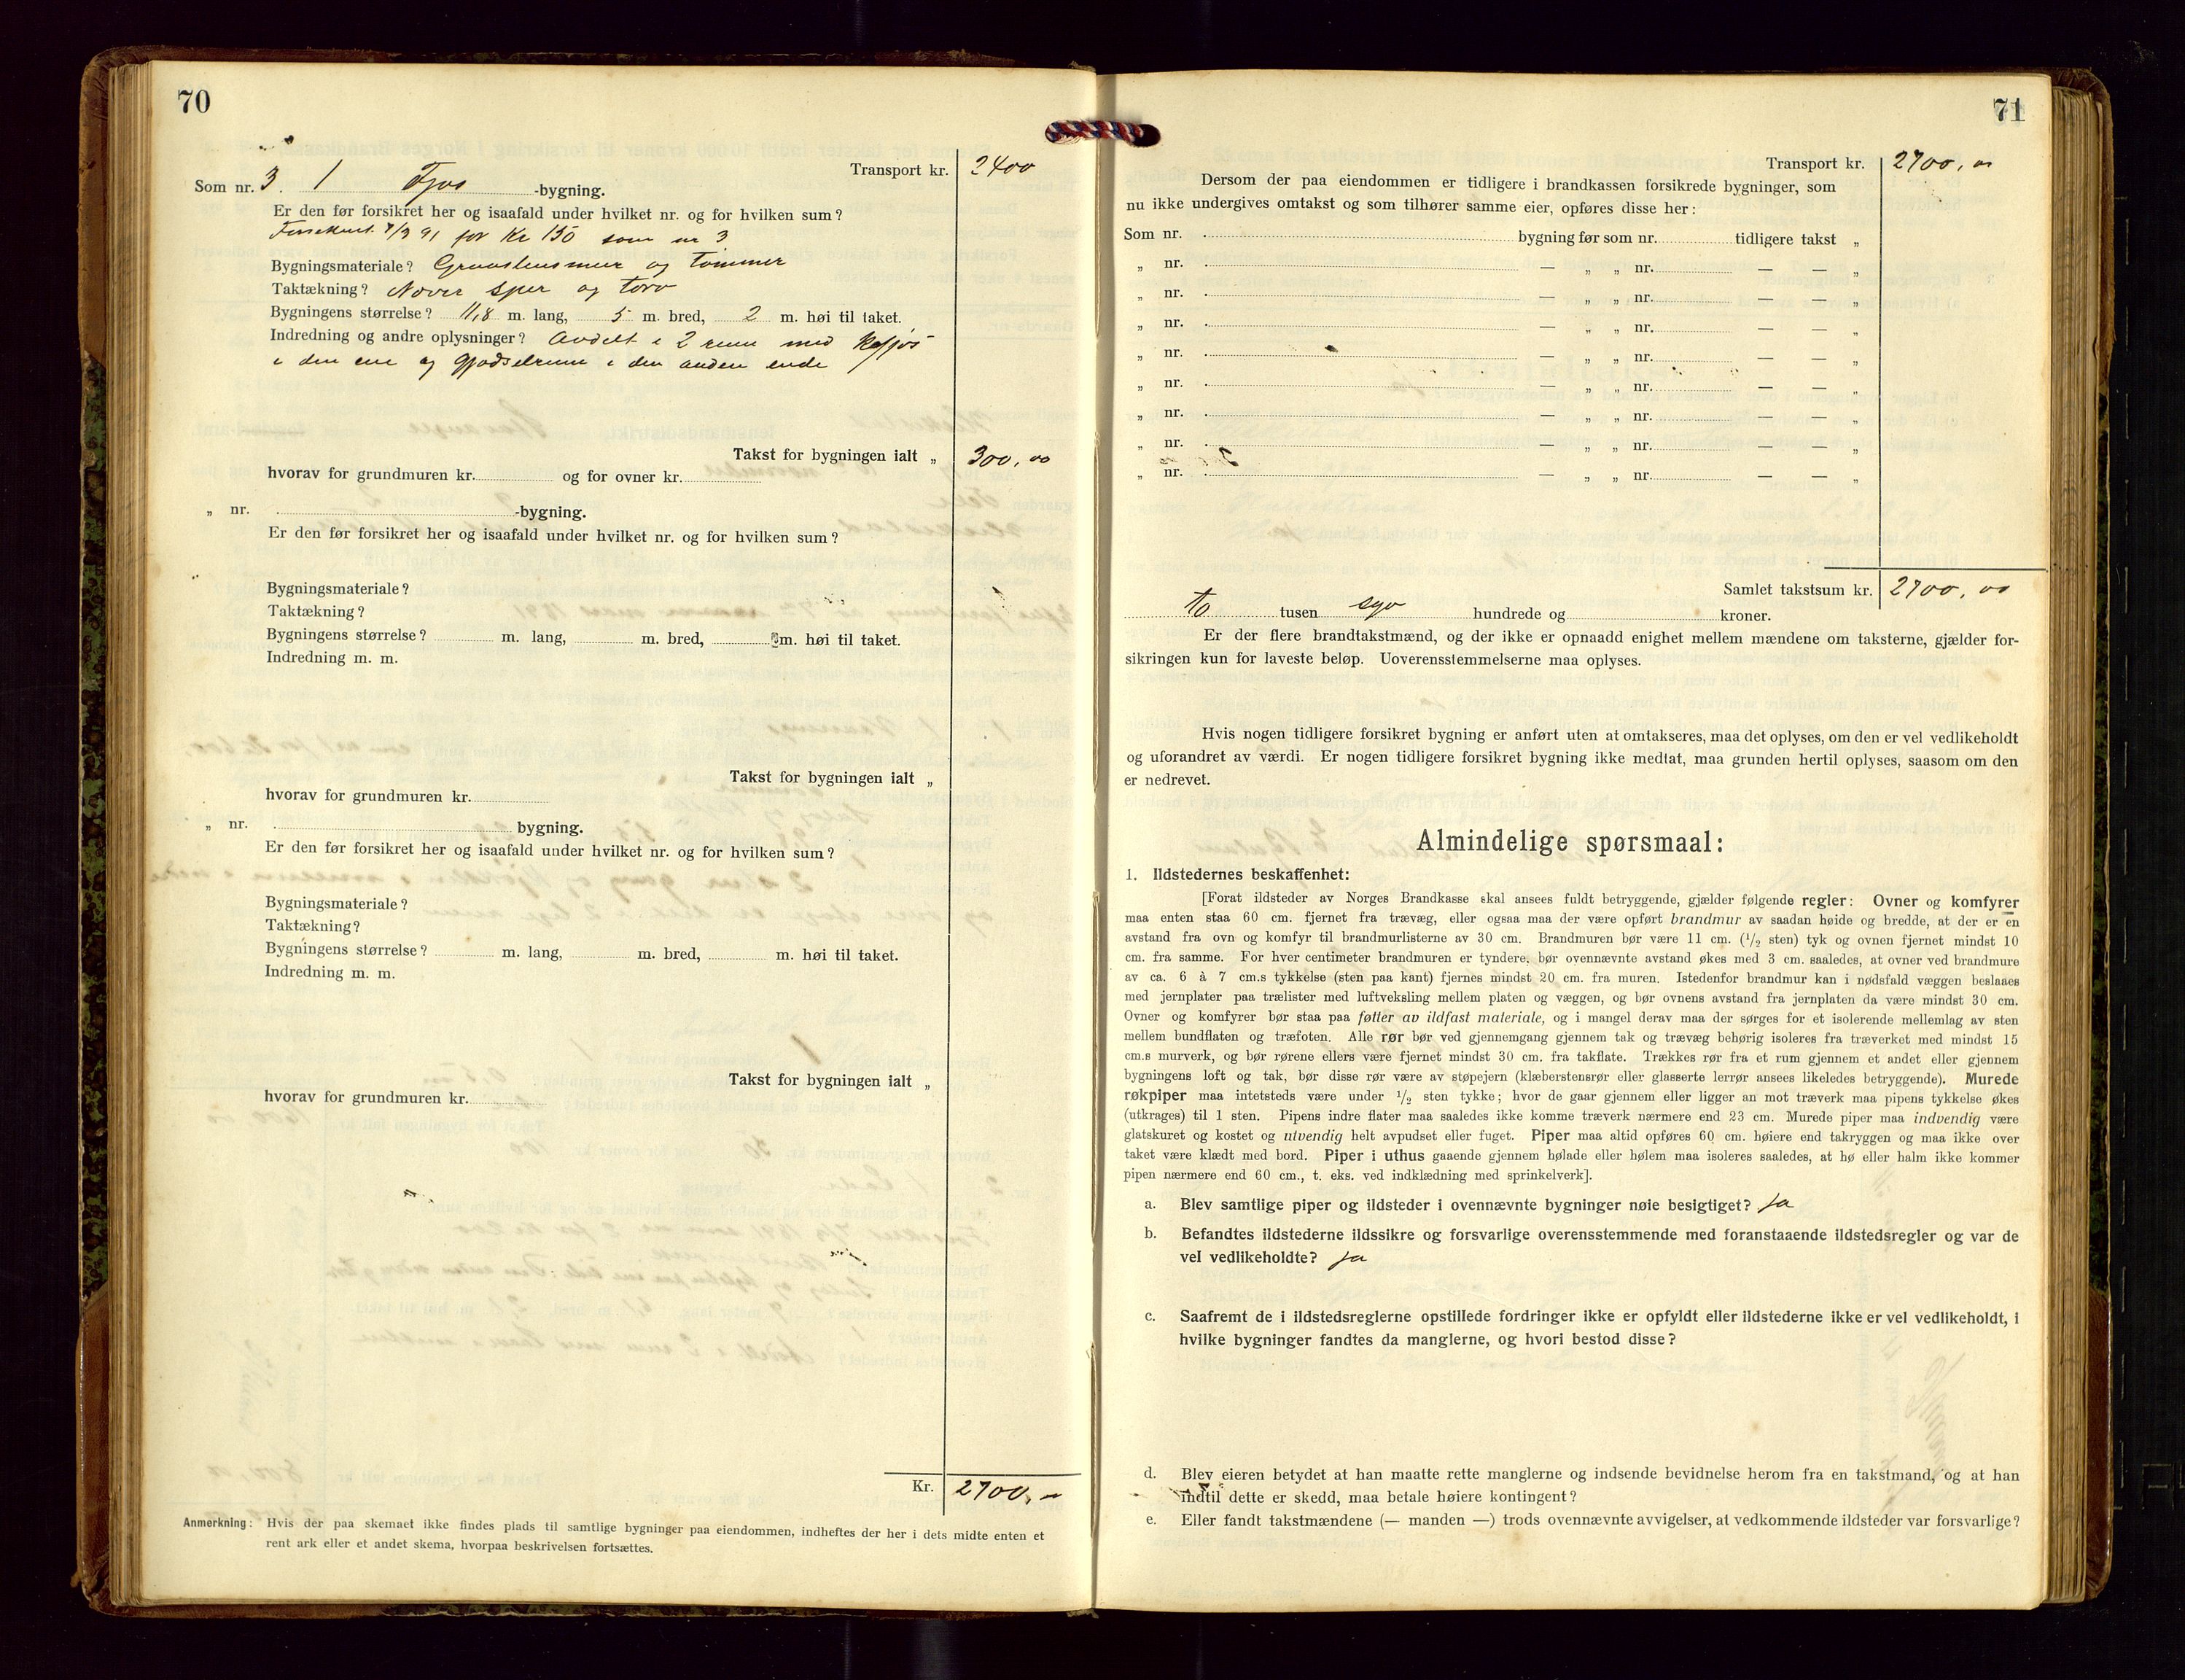 70
Transport kr. 2400
Som nr. 3. 1 Fjøs -bygning.
Er den før forsikret her og isaafald under hvilket nr. og for hvilken sum?
Forsikret 7/3 91 for Kr 150 som nr 3
Bygningsmateriale? Graastensmur og Tømmer
Taktækning? Næver sper og torv
Bygningens størrelse? 11,8 m. lang, 5 m. bred, 2 m. høi til taket.
Indredning og andre oplysninger? Avdelt i 2 rum med
i den ene og gjødselrum i den anden ende
Takst for bygningen ialt „ 300,00
hvorav for grundmuren kr. og for ovner kr.
„ nr. -bygning.
Er den før forsikret her og isaafald under hvilket nr. og for hvilken sum?
Bygningsmateriale?
Taktækning?
Bygningens størrelse? m. lang, m. bred, m. høi til taket.
Indredning m. m.
Takst for bygningen ialt „
hvorav for grundmuren kr.
„ nr. bygning.
Er den før forsikret her og isaafald under hvilket nr. og for hvilken sum?
Bygningsmateriale?
Taktækning?
Bygningens størrelse? m. lang, m. bred, m. høi til taket.
Indredning m. m.
Takst for bygningen ialt „
hvorav for grundmuren kr.
Kr. 2700,—
Anmerkning: Hvis der paa skemaet ikke findes plads til samtlige bygninger paa eiendommen, indheftes der her i dets midte enten et
rent ark eller et andet skema, hvorpaa beskrivelsen fortsættes.
71
Transport kr. 2700,00
Dersom der paa eiendommen er tidligere i brandkassen forsikrede bygninger, som
nu ikke undergives omtakst og som tilhører samme eier, opføres disse her:
Som nr. bygning før som nr. tidligere takst „
„ nr. — „ „ nr. — — „
„ nr. — „ „ nr. — — „
„ nr. — „ „ nr. — — „
„ nr. — „ „ nr. — — „
„ nr. — „ „ nr. — — „
„ nr. — „ „ nr. — — „
„ nr. — „ „ nr. — — „
„ nr. — „ „ nr. — — „
Samlet takstsum kr. 2700,00
to tusen syv hundrede og kroner.
Er der flere brandtakstmænd, og der ikke er opnaadd enighet mellem mændene om taksterne, gjælder for-
sikringen kun for laveste beløp. Uoverensstemmelserne maa oplyses.
Hvis nogen tidligere forsikret bygning er anført uten at omtakseres, maa det oplyses, om den er vel vedlikeholdt
og uforandret av værdi. Er nogen tidligere forsikret bygning ikke medtat, maa grunden hertil oplyses, saasom om den
er nedrevet.
Almindelige spørsmaal:
1. Ildstedernes beskaffenhet:
[Forat ildsteder av Norges Brandkasse skal ansees fuldt betryggende, gjælder følgende regler: Ovner og komfyrer
maa enten staa 60 cm. fjernet fra trævæg, eller ogsaa maa der være opført brandmur av saadan høide og bredde, at der er en
avstand fra ovn og komfyr til brandmurlisterne av 30 cm. Brandmuren bør være 11 cm. (1/2 sten) tyk og ovnen fjernet mindst 10
cm. fra samme. For hver centimeter brandmuren er tyndere, bør ovennævnte avstand økes med 3 cm. saaledes, at ovner ved brandmure
av ca. 6 à 7 cm.s tykkelse (sten paa kant) fjernes mindst 20 cm. fra muren. Istedenfor brandmur kan i nødsfald væggen beslaaes
med jernplater paa trælister med luftveksling mellem platen og væggen, og bør ovnens avstand fra jernplaten da være mindst 30 cm.
Ovner og komfyrer bør staa paa føtter av ildfast materiale, og i mangel derav maa der sørges for et isolerende mellemlag av sten
mellem bundflaten og træfoten. Alle rør bør ved gjennemgang gjennem tak og trævæg behørig isoleres fra træverket med mindst 15
cm.s murverk, og bør rørene ellers være fjernet mindst 30 cm. fra takflate. Trækkes rør fra et rum gjennem et andet eller gjennem
bygningens loft og tak, bør disse rør være av støpejern (klæberstensrør eller glasserte lerrør ansees likeledes betryggende). Murede
røkpiper maa intetsteds være under 1/2 sten tykke; hvor de gaar gjennem eller ligger an mot træverk maa pipens tykkelse økes
(utkrages) til 1 sten. Pipens indre flater maa saaledes ikke komme træverk nærmere end 23 cm. Murede piper maa indvendig være
glatskuret og kostet og utvendig helt avpudset eller fuget. Piper maa altid opføres 60 cm. høiere end takryggen og maa ikke over
taket være klædt med bord. Piper i uthus gaaende gjennem hølade eller hølem maa isoleres saaledes, at hø eller halm ikke kommer
pipen nærmere end 60 cm., t. eks. ved indklædning med sprinkelverk].
a. Blev samtlige piper og ildsteder i ovennævnte bygninger nøie besigtiget? ja
b. Befandtes ildstederne ildssikre og forsvarlige overensstemmende med foranstaaende ildstedsregler og var de
vel vedlikeholdte? ja
c. Saafremt de i ildstedsreglerne opstillede fordringer ikke er opfyldt eller ildstederne ikke er vel vedlikeholdt, i
hvilke bygninger fandtes da manglerne, og hvori bestod disse?
d. Blev eieren betydet at han maatte rette manglerne og indsende bevidnelse herom fra en takstmand, og at han
indtil dette er skedd, maa betale høiere kontingent?
e. Eller fandt takstmændene (— manden —) trods ovennævnte avvigelser, at vedkommende ildsteder var forsvarlige?